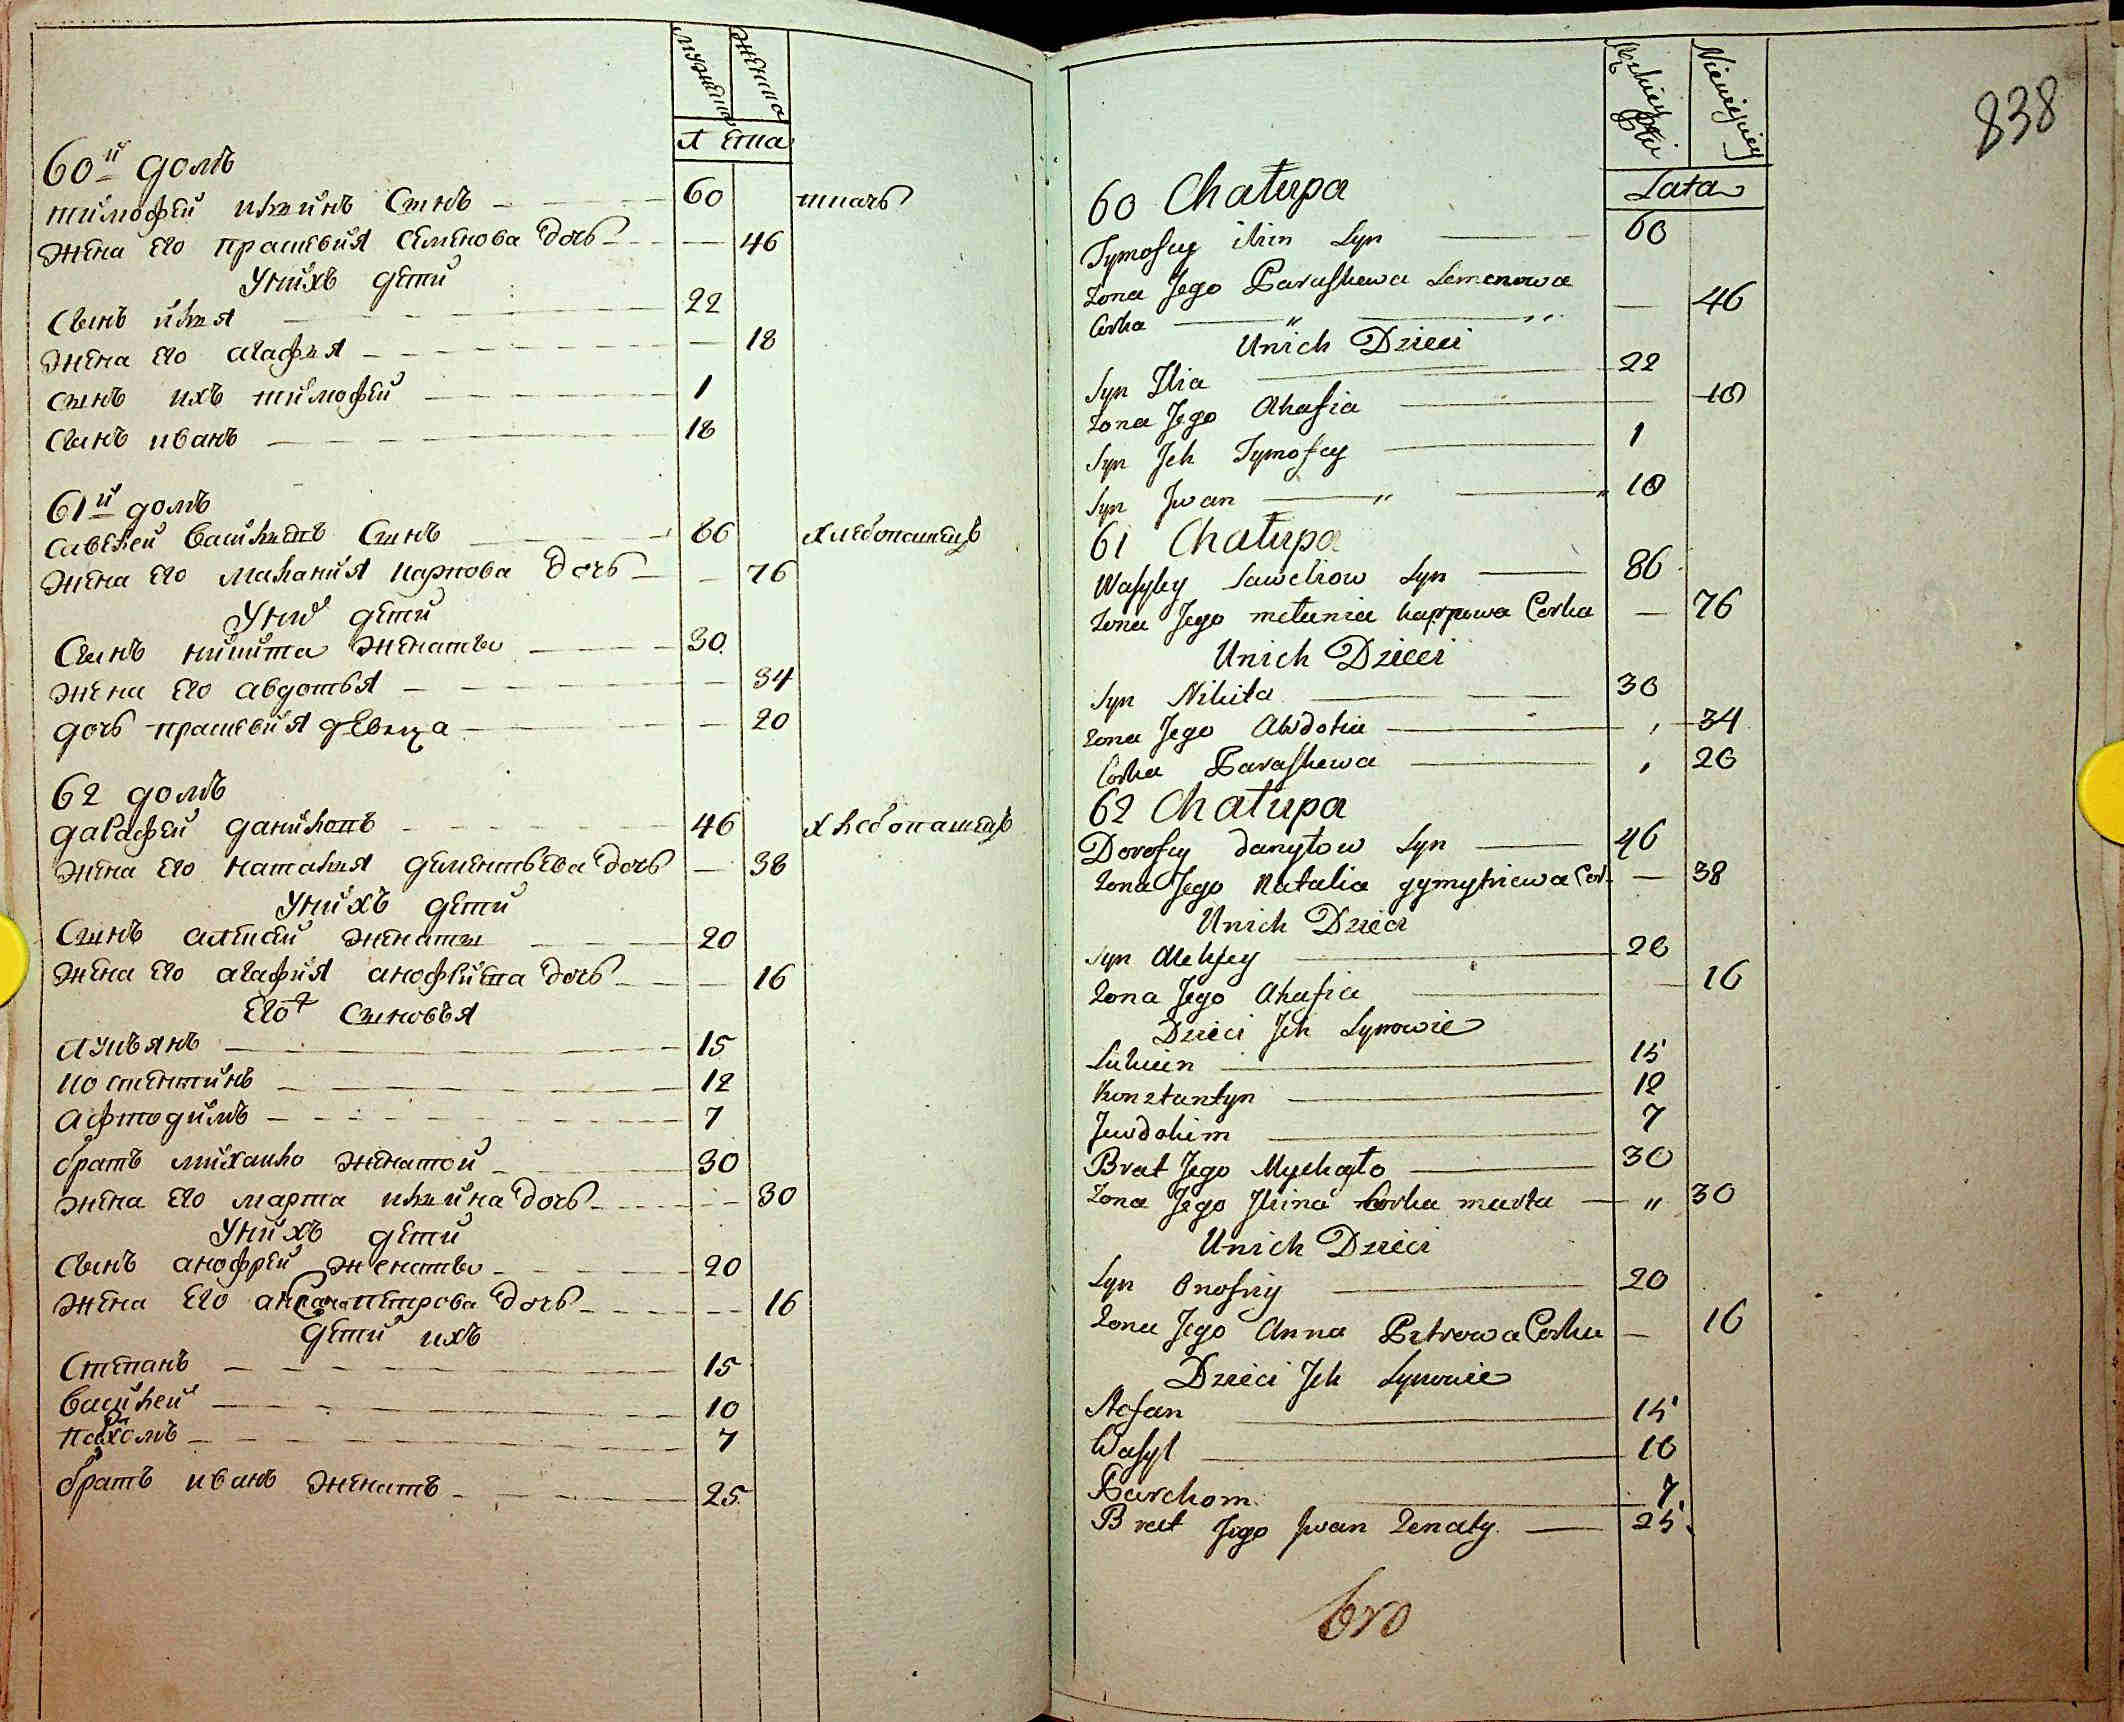 мужеска женска
лета
60й домъ
тимофей ильинъ Сынъ 60 ткачь
жена его прасковия семенова дочь 46
У нихъ дети
Сынъ илья 22
жена его агафья 18
сынъ ихъ тимофей 1
Сынъ иванъ 18
61й домъ
савелей васильевъ Сынъ 86 хлебопашецъ
жена его малания карпова дочь 76
У них дети
Сынъ никита женаты 30
жена его авдотья 34
дочь прасковия девица 20
62 домъ
дарафей даниловъ 46 хлебопашецъ
жена его наталья дементьева дочь 38
У нихъ дети
Сынъ алексей женаты 20
жена его агафия анофриева дочь 16
его сыновья
лукьянъ 15
костентинъ 12
афтодимъ 7
братъ михаило женатой 30
жена его марта ильина дочь 30
У нихъ дети
Сынъ анофрей женаты 20
жена его петрова дочь 16
дети ихъ
Степанъ 15
Василей 10
пахомъ 7
братъ иванъ женатъ 25
838
Męzkiey Płci Niewieściey
Lata
60 Chałupa
Tymofiey ilin Syn 60
Żona Jego Paraskewa Semenowa
Corka " " 46
Unich Dzieci
Syn Ilia 22
Żona Jego Ahafia 18
Syn Jch Tymofey 1
Syn Jwan " " 18
61 Chałupa
Wasyley Saweliow Syn 86
Żona Jego mełania karpowa Corka 76
Unich Dzieci
Syn Nikita 30
Żona Jego Awdotia 34
Corka Paraskewa 20
62 Chałupa
Dorofiy danyłow Syn 46
Żona Jego Natalia gymytriewa Cor. 38
Unich Dzieci
Syn Aleksey 20
Żona Jego Ahafia 16
Dzieci Jch Synowie
Lukian 15
Konstantyn 12
Juwdokim 7
Brat Jego Mychayło 30
Żona Jego Jlina Corka marta " 30
Unich Dzieci
Syn Onofriy 20
Żona Jego Anna Petrowa Corka 16
Dzieci Jch Synowie
Stefan 15
Wasyl 10
Parchom 7
Brat Jego Jwan Żenaty 25